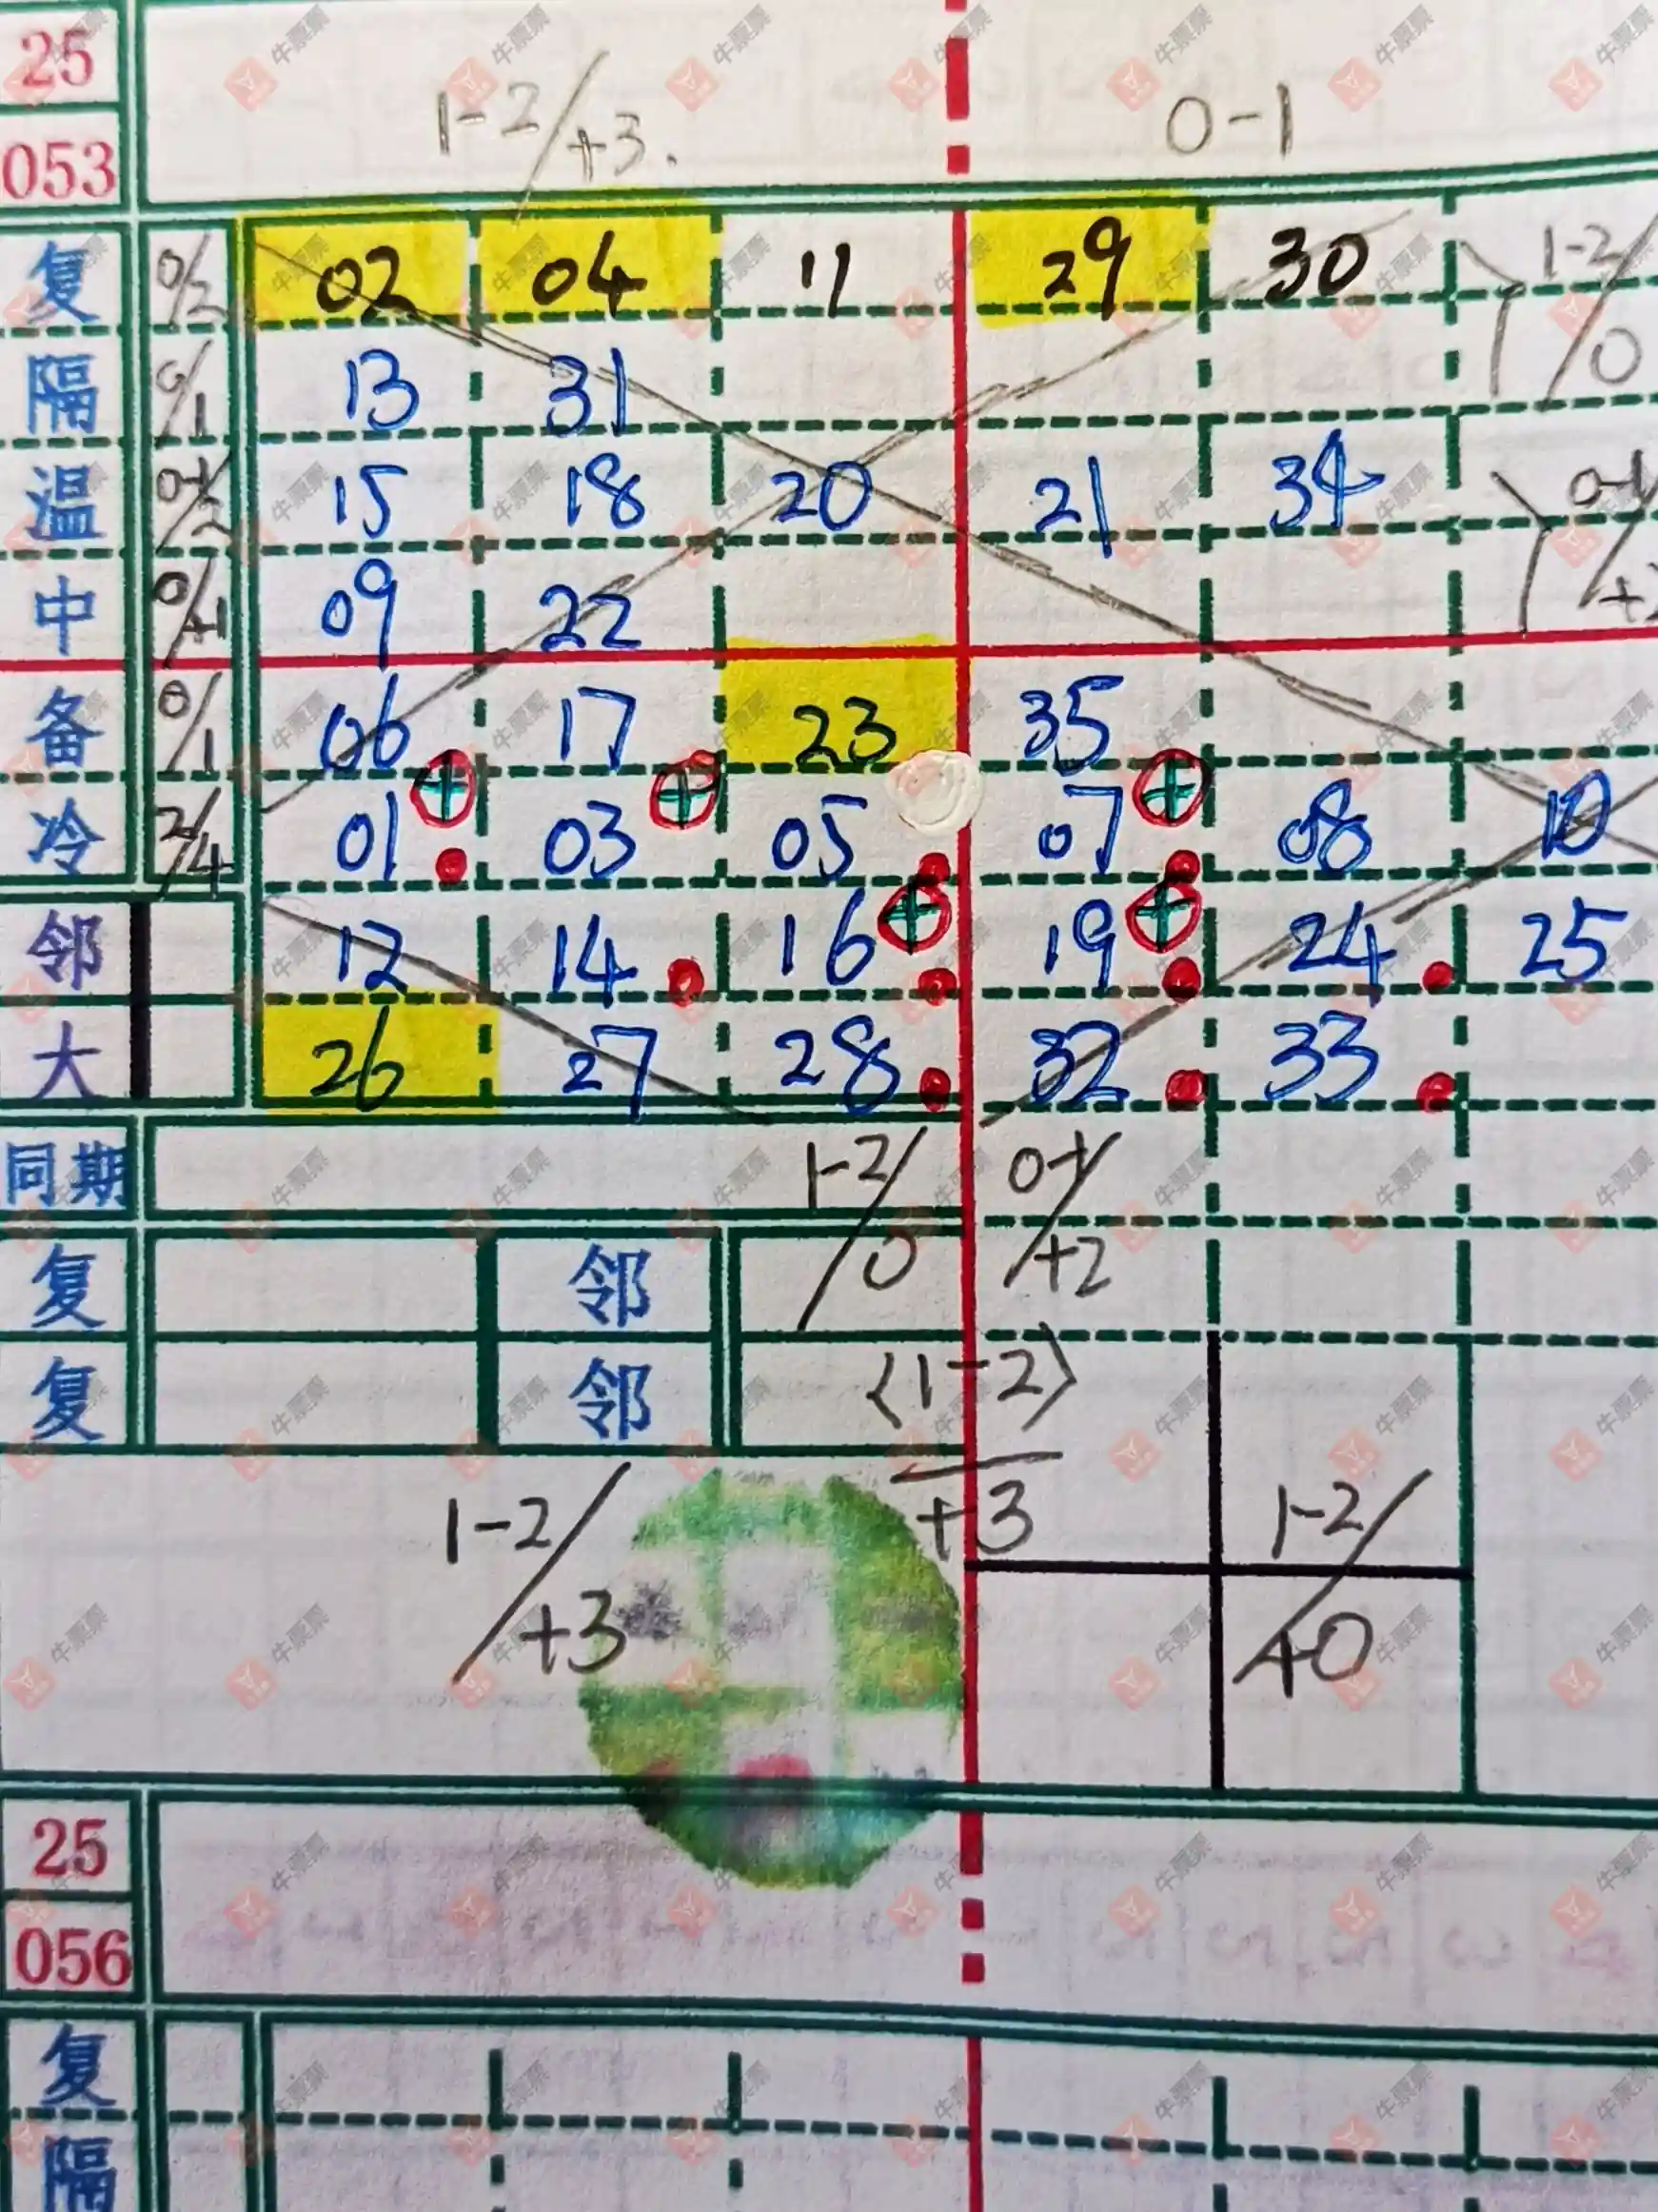 25
053
1-2/+3.
0-1
复 0/2 02 04 11 29 30 1-2/0
隔 0/1 13 31
温 0-1/2 15 18 20 21 34 0-1
中 0/+1 09 22
备 0/1 06 17 23 35
冷 2/4 01 03 05 07 08 10
邻 12 14 16 19 24 25
大 26 27 28 32 33
同期 1-2/0 0-1/+2
复 邻
复 邻 <1-2>/+3
1-2/+3 1-2/+0
25
056
复
隔
牛票票